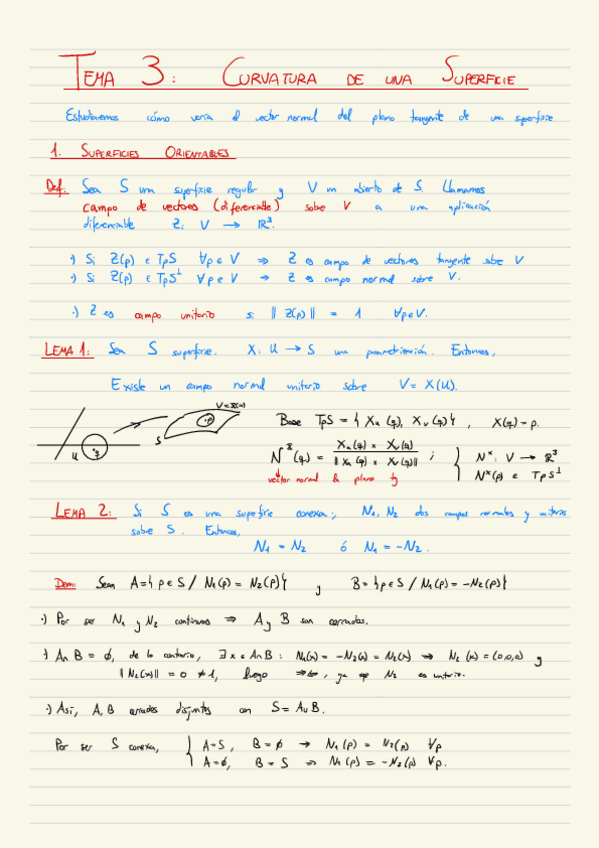 TEMA 3: CURVATURA DE UNA SUPERFICIE
Estudiaremos cómo varía el vector normal del plano tangente de una superficie
1. SUPERFICIES ORIENTABLES
Def: Sea S una superficie regular y V un abierto de S. Llamamos
campo de vectores (diferenciable) sobre V a una aplicación
diferenciable Z: V → ℝ³.
·) Si Z(p) ∈ TpS ∀p ∈ V ⇒ Z es campo de vectores tangente sobre V
·) Si Z(p) ∈ TpS⊥ ∀p ∈ V ⇒ Z es campo normal sobre V.
·) Z es campo unitario si ‖Z(p)‖ = 1 ∀p∈V.
LEMA 1: Sea S superficie. X: U → S una parametrización. Entonces,
Existe un campo normal unitario sobre V = X(U).
V = X(U)
S
U
q
Base TpS = {Xu(q), Xv(q)}, X(q) = p.
N^X(q) = Xu(q) × Xv(q) / ‖Xu(q) × Xv(q)‖ ; { N^X: V → ℝ³
N^X(p) ∈ TpS⊥
vector normal al plano tg
LEMA 2: Si S es una superficie conexa; N₁, N₂ dos campos normales y unitarios
sobre S. Entonces,
N₁ = N₂ ó N₁ = -N₂.
Dem: Sean A = {p∈S / N₁(p) = N₂(p)} y B = {p∈S / N₁(p) = -N₂(p)}
·) Por ser N₁ y N₂ continuos ⇒ A y B son cerrados.
·) A∩B = ∅, de lo contrario, ∃x∈A∩B : N₁(x) = -N₂(x) = N₂(x) → N₂(x) = (0,0,0) y
‖N₂(x)‖ = 0 ≠ 1, luego ⇒⇐, ya que N₂ es unitario.
·) Así, A, B cerrados disjuntos con S = A∪B.
Por ser S conexa, { A = S, B = ∅ → N₁(p) = N₂(p) ∀p
A = ∅, B = S ⇒ N₁(p) = -N₂(p) ∀p.